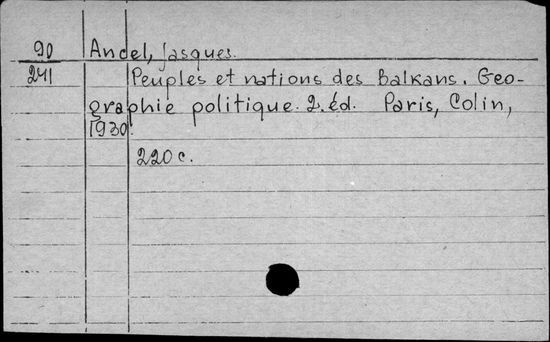 90 Ancel, Jasques.
241 Peuples et nations des Balkans. Geo-
graphie politique. 2. éd. Paris, Colin,
1930.
220 c.